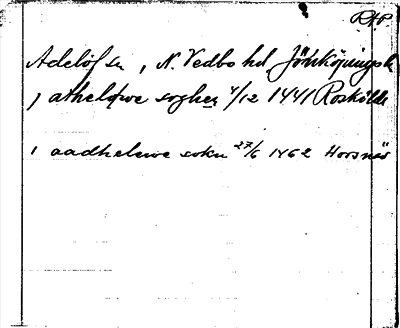 RAP
Adelöf sn, N. Vedbo hd Jönköpings l
j atheløwe soghen 4/12 1441 Roskilde
i aadhelewe sokn 27/6 1462 Horsnäs